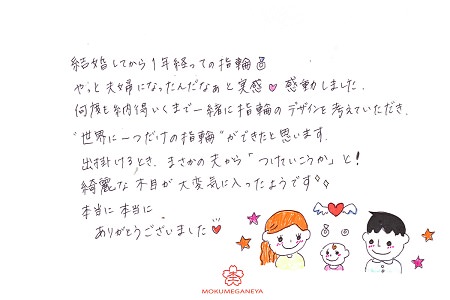 結婚してから1年経っての指輪
やっと夫婦になったんだなぁと実感♥感動しました.
何度も納得いくまで一緒に指輪のデザインを考えていただき.
"世界に一つだけの指輪"ができたと思います.
出掛けるとき、まさかの夫から「つけていこうか」と!
綺麗な木目が大変気に入ったようです
本当に本当に
ありがとうございました
MOKUMEGANEYA